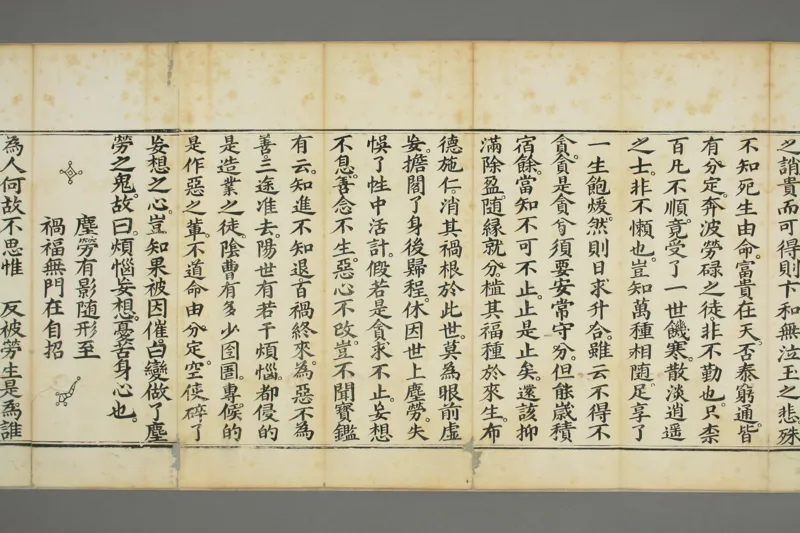 之諂貴而可得則卞和無泣玉之悲殊
不知死生由命富貴在天否泰窮通皆
有分定奔波勞碌之徒非不勤也只柰
百凡不順竟受了一世饑寒散淡逍遥
之士非不懶也豈知萬種相随足享了
一生飽煖然則日求升合雖云不得不
貪貪是貪兮須要安常守分但能歲積
宿餘當知不可不止止是止矣還該抑
滿除盈随縁就分槛其福種於來生布
德施仁消其禍根於此世莫為眼前虚
妄擔閣了身後歸程休因世上塵勞失
悞了性中活計假若是貪求不止妄想
不息善念不生惡心不改豈不聞寶鑑
有云知進不知退百禍終來為惡不為
善三途准去陽世有若干煩惱都侵的
是造業之徒陰曹有多少囹圄專候的
是作惡之軰不道命由分定空使碎了
妄想之心豈知果被因催甾變做了塵
勞之鬼故曰煩惱妄想憂苦身心也
塵勞有影随形至
禍福無門在自招
為人何故不思惟 反被勞生是為誰